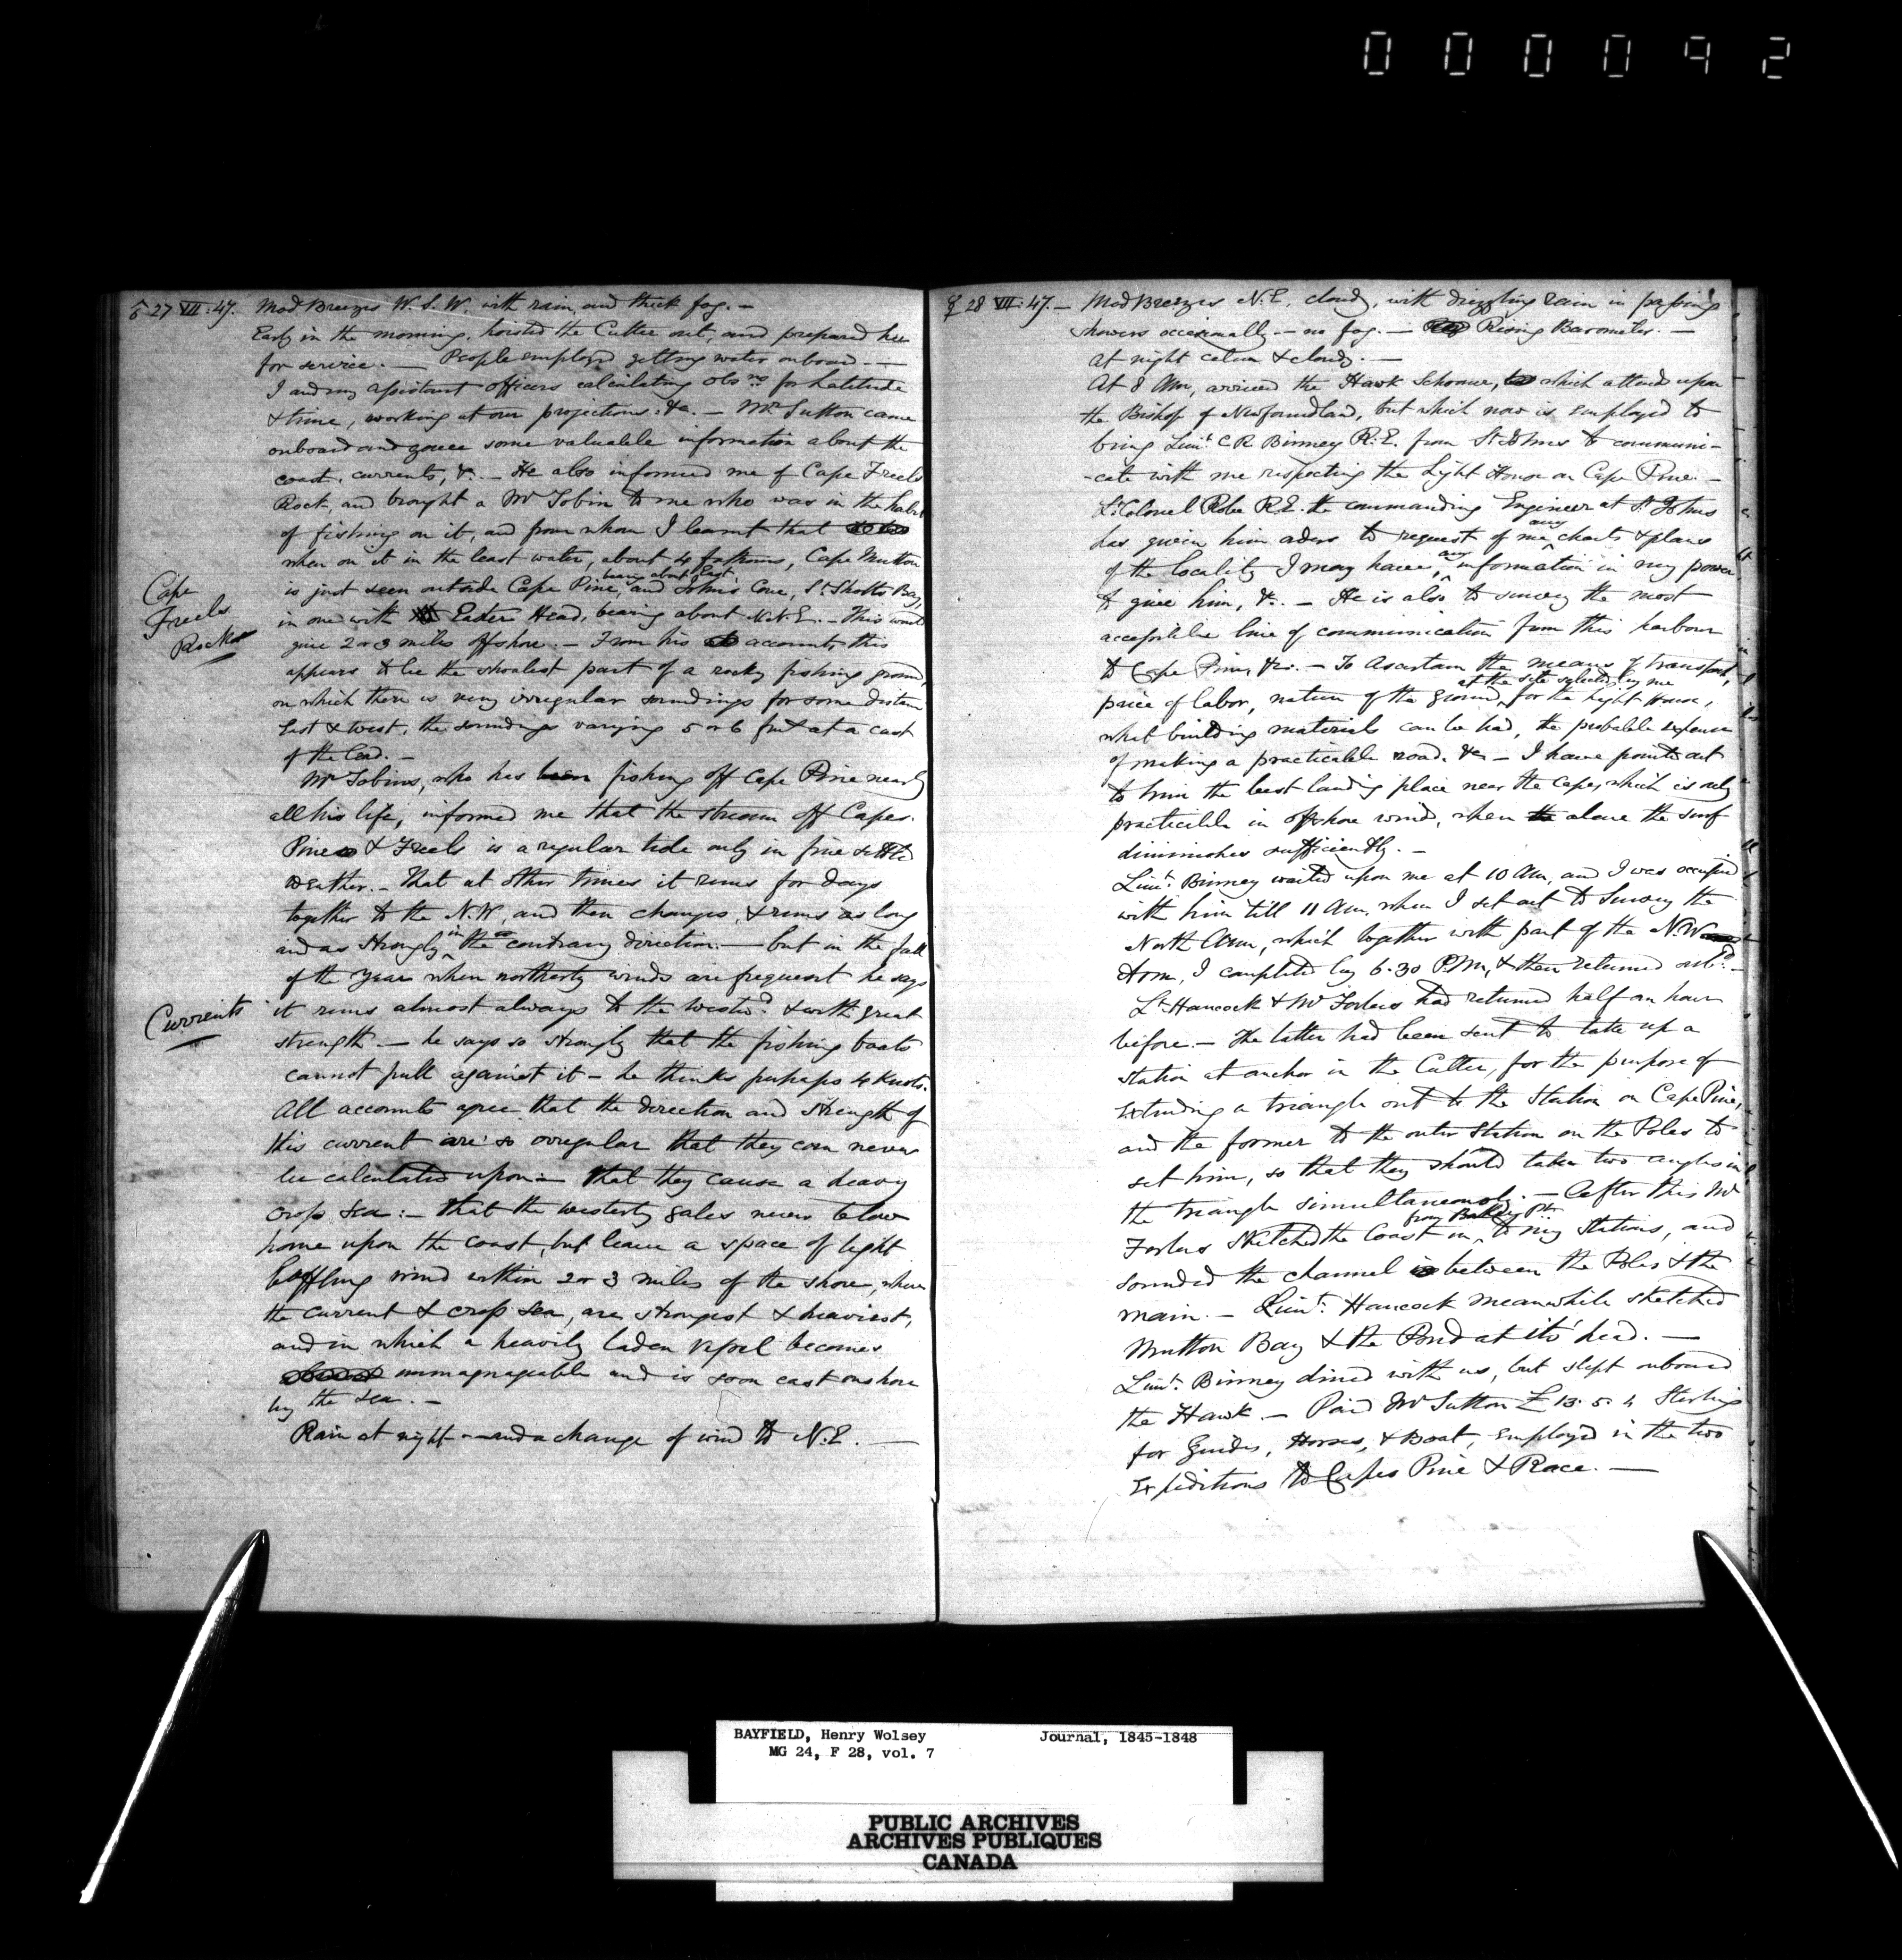 000092
♂ 27 VII: 47. Mod Breezes W.S.W. with rain, and thick fog. —
Early in the morning, hoisted the Cutter out, and prepared her
for service. — People employed getting water onboard. —
I and my assistant officers calculating obsns for Latitude
& time, working at our projections. &c. — Mr Sutton came
onboard and gave some valuable information about the
coast, currents, &c. — He also informed me of Cape Freels
Rock, and brought a Mr Tobin to me who was in the habit
of fishing on it, and from whom I learnt that
when on it in the least water, about 4 fathoms, Cape Mutton
is just seen outside Cape Pine, bearing about East, and Johns Cove, St Shotts Bay,
Cape
Freels
Rock
in one with Eastern Head, bearing about N.N.E. — This would
give 2 or 3 miles offshore. — From his account, this
appears to be the shoalest part of a rocky fishing ground,
on which there is very irregular soundings for some distance
East & West, the soundings varying 5 or 6 fms at a cast
of the lead. —
Mr Tobins, who has been fishing off Cape Pine nearly
all his life, informed me that the stream off Capes
Pine & Freels is a regular tide only in fine settled
weather. — That at other times it runs for days
together to the N.W, and then changes, & runs as long
and as strongly in the contrary direction: — but in the fall
of the year when northerly winds are frequent he says
Currents
it runs almost always to the westwd & with great
strength. — he says so strongly that the fishing boats
cannot pull against it — he thinks perhaps 4 Knots.
All accounts agree that the direction and strength of
this current are so irregular that they can never
be calculated upon — that they cause a heavy
cross sea: — that the westerly gales never blow
home upon the coast, but leave a space of light
baffling wind within 2 or 3 miles of the shore, where
the current & cross sea, are strongest & heaviest,
and in which a heavily laden vessel becomes
unmanageable and is soon cast onshore
by the sea. —
Rain at night — and a change of wind to N.E. —
☿ 28 VII: 47. — Mod Breezes N.E. cloudy, with drizzling rain in passing
showers occasionally — no fog. — Rising Barometer. —
At night calm & cloudy. —
At 8 Am, arrived the Hawk Schooner, which attends upon
the Bishop of Newfoundland, but which now is employed to
bring Lieut. C.R. Binney R.E. from St Johns to communi-
-cate with me respecting the Light House on Cape Pine. —
Lt Colonel Robe R.E. the commanding Engineer at St Johns
has given him orders to request of me any charts & plans
of the locality I may have, any information in my power
to give him, &c. — He is also to survey the most
accessible line of communication from this harbour
to Cape Pine, &c. — To ascertain the means of transport,
price of labor, nature of the ground at the site selected by me for the Light House,
what building materials can be had, the probable expense
of making a practicable road. &c — I have pointed out
to him the best landing place near the Cape, which is only
practicable in offshore winds, when alone the surf
diminishes sufficiently. —
Lieut. Binney waited upon me at 10 Am, and I was occupied
with him till 11 Am, when I set out to survey the
North Arm, which together with part of the N.W
Arm, I completed by 6.30 P.M, & then returned onbd. —
Lt Hancock & Mr Forbes had returned half an hour
before. — The latter had been sent to take up a
station at anchor in the Cutter, for the purpose of
Extending a triangle out to the Station on Cape Pine,
and the former to the outer Station on the Poles to
set him, so that they should take two angles in
the triangle simultaneously. — After this Mr
Forbes sketched the Coast in, to my stations, and
sounded the channel between the Poles & the
main. — Lieut. Hancock meanwhile sketched
Mutton Bay & the Pond at its' head. —
Lieut. Binney dined with us, but slept onboard
the Hawk. — Paid Mr Sutton £ 13. 5. 4 Sterling
for Guides, Horses, & Boat, employed in the two
Expeditions to Capes Pine & Race. —
BAYFIELD, Henry Wolsey Journal, 1845-1848
MG 24, F 28, vol. 7
PUBLIC ARCHIVES
ARCHIVES PUBLIQUES
CANADA